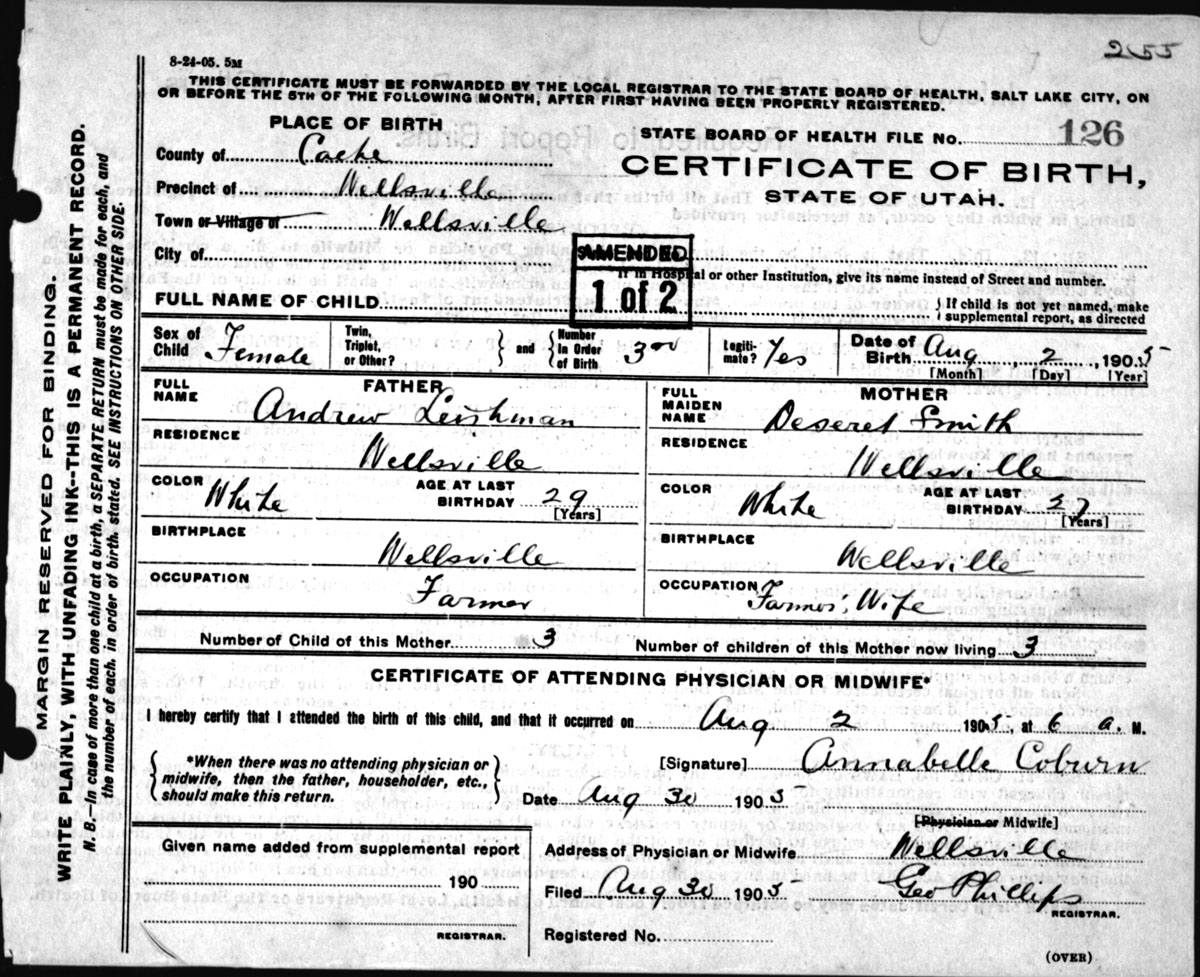 255
8-24-05. 5M
THIS CERTIFICATE MUST BE FORWARDED BY THE LOCAL REGISTRAR TO THE STATE BOARD OF HEALTH, SALT LAKE CITY, ON
OR BEFORE THE 5TH OF THE FOLLOWING MONTH, AFTER FIRST HAVING BEEN PROPERLY REGISTERED.
PLACE OF BIRTH
STATE BOARD OF HEALTH FILE No. 126
County of Cache
CERTIFICATE OF BIRTH,
Precinct of Wellsville
STATE OF UTAH.
Town or Village of Wellsville
AMENDED
City of
If in Hospital or other Institution, give its name instead of Street and number.
1 of 2
FULL NAME OF CHILD
If child is not yet named, make
supplemental report, as directed
Sex of Child Female
Twin, Triplet, or Other?
and
Number In Order of Birth 3rd
Legiti- mate? Yes
Date of Birth Aug 2, 1905
[Month] [Day] [Year]
FATHER
FULL NAME Andrew Leishman
RESIDENCE
Wellsville
COLOR White
AGE AT LAST BIRTHDAY 29
[Years]
BIRTHPLACE
Wellsville
OCCUPATION
Farmer
MOTHER
FULL MAIDEN NAME Deseret Smith
RESIDENCE
Wellsville
COLOR White
AGE AT LAST BIRTHDAY 27
[Years]
BIRTHPLACE
Wellsville
OCCUPATION Farmer, Wife
Number of Child of this Mother 3
Number of children of this Mother now living 3
CERTIFICATE OF ATTENDING PHYSICIAN OR MIDWIFE*
I hereby certify that I attended the birth of this child, and that it occurred on Aug 2 1905, at 6 a. M.
*When there was no attending physician or
midwife, then the father, householder, etc.,
should make this return.
[Signature] Annabelle Coburn
Date Aug 30 1905
[Physician or Midwife]
Given name added from supplemental report
190
REGISTRAR.
Address of Physician or Midwife Wellsville
Filed Aug 30 1905 Geo Phillips
REGISTRAR.
Registered No.
(OVER)
MARGIN RESERVED FOR BINDING.
WRITE PLAINLY, WITH UNFADING INK--THIS IS A PERMANENT RECORD.
N. B.—In case of more than one child at a birth, a SEPARATE RETURN must be made for each, and
the number of each, in order of birth, stated. SEE INSTRUCTIONS ON OTHER SIDE.